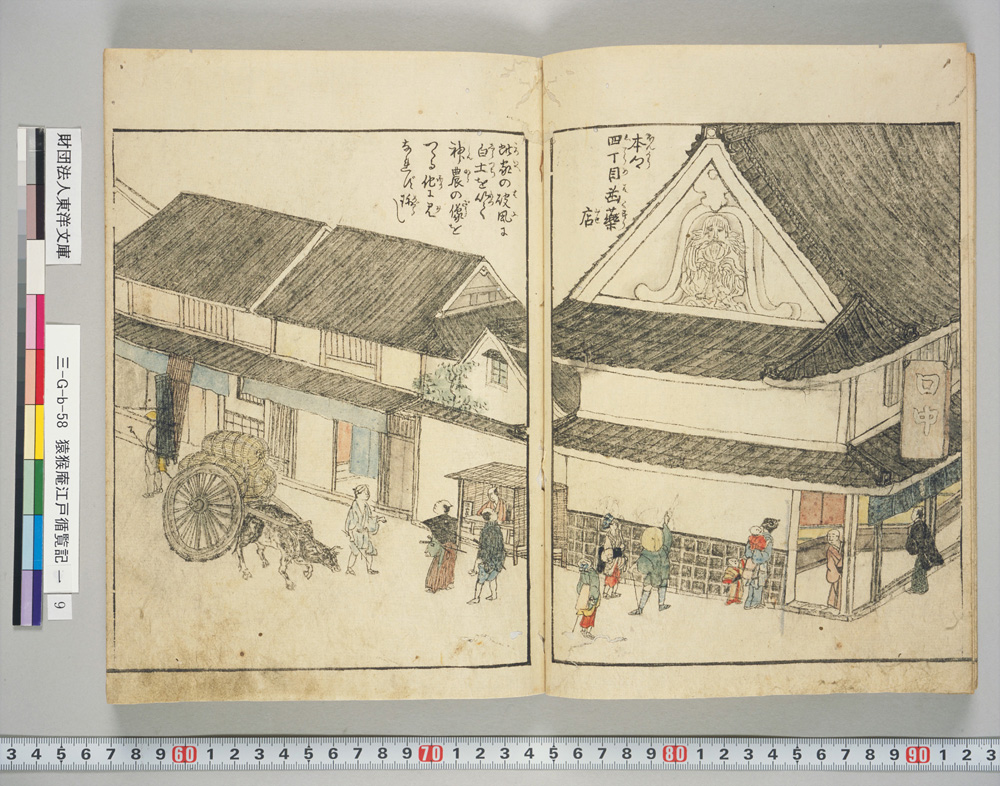 本町
四丁目薬
店
此家の破風に
白土を以て
神農の像を
つくる他に見
回中
財団法人東洋文庫
三-G-b-58 猿猴庵江戸循覧記 一
9
3 4 5 6 7 8 9 60 1 2 3 4 5 6 7 8 9 70 1 2 3 4 5 6 7 8 9 80 1 2 3 4 5 6 7 8 9 90 1 2 3